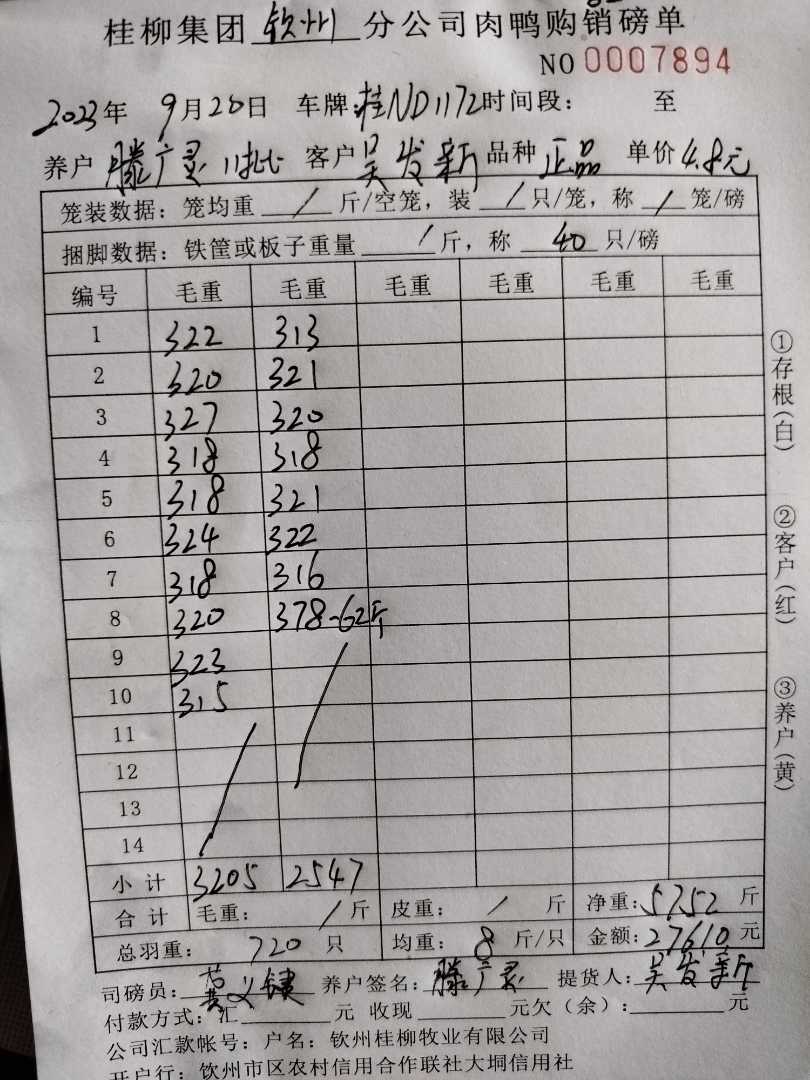 桂柳集团 钦州 分公司肉鸭购销磅单
NO 0007894
2023年 9月20日 车牌:桂ND1172 时间段: 至
养户 滕广灵 11批 客户 吴发新 品种 正品 单价 4.8元
笼装数据:笼均重 / 斤/空笼,装 / 只/笼,称 / 笼/磅
捆脚数据:铁筐或板子重量 / 斤,称 40 只/磅
编号 毛重 毛重 毛重 毛重 毛重 毛重
1 322 313
2 320 321
3 327 320
4 318 318
5 318 321
6 324 322
7 318 316
8 320 378-62斤
9 323
10 315
11
12
13
14
小计 3205 2547
合计 毛重: / 斤 皮重: / 斤 净重:5752 斤
总羽重: 720 只 均重: 8 斤/只 金额:27610 元
司磅员: 义键 养户签名:滕广灵 提货人:吴发新
付款方式:汇 元 收现 元欠(余): 元
公司汇款帐号:户名:钦州桂柳牧业有限公司
开户行:钦州市区农村信用合作联社大垌信用社
①存根(白)
②客户(红)
③养户(黄)